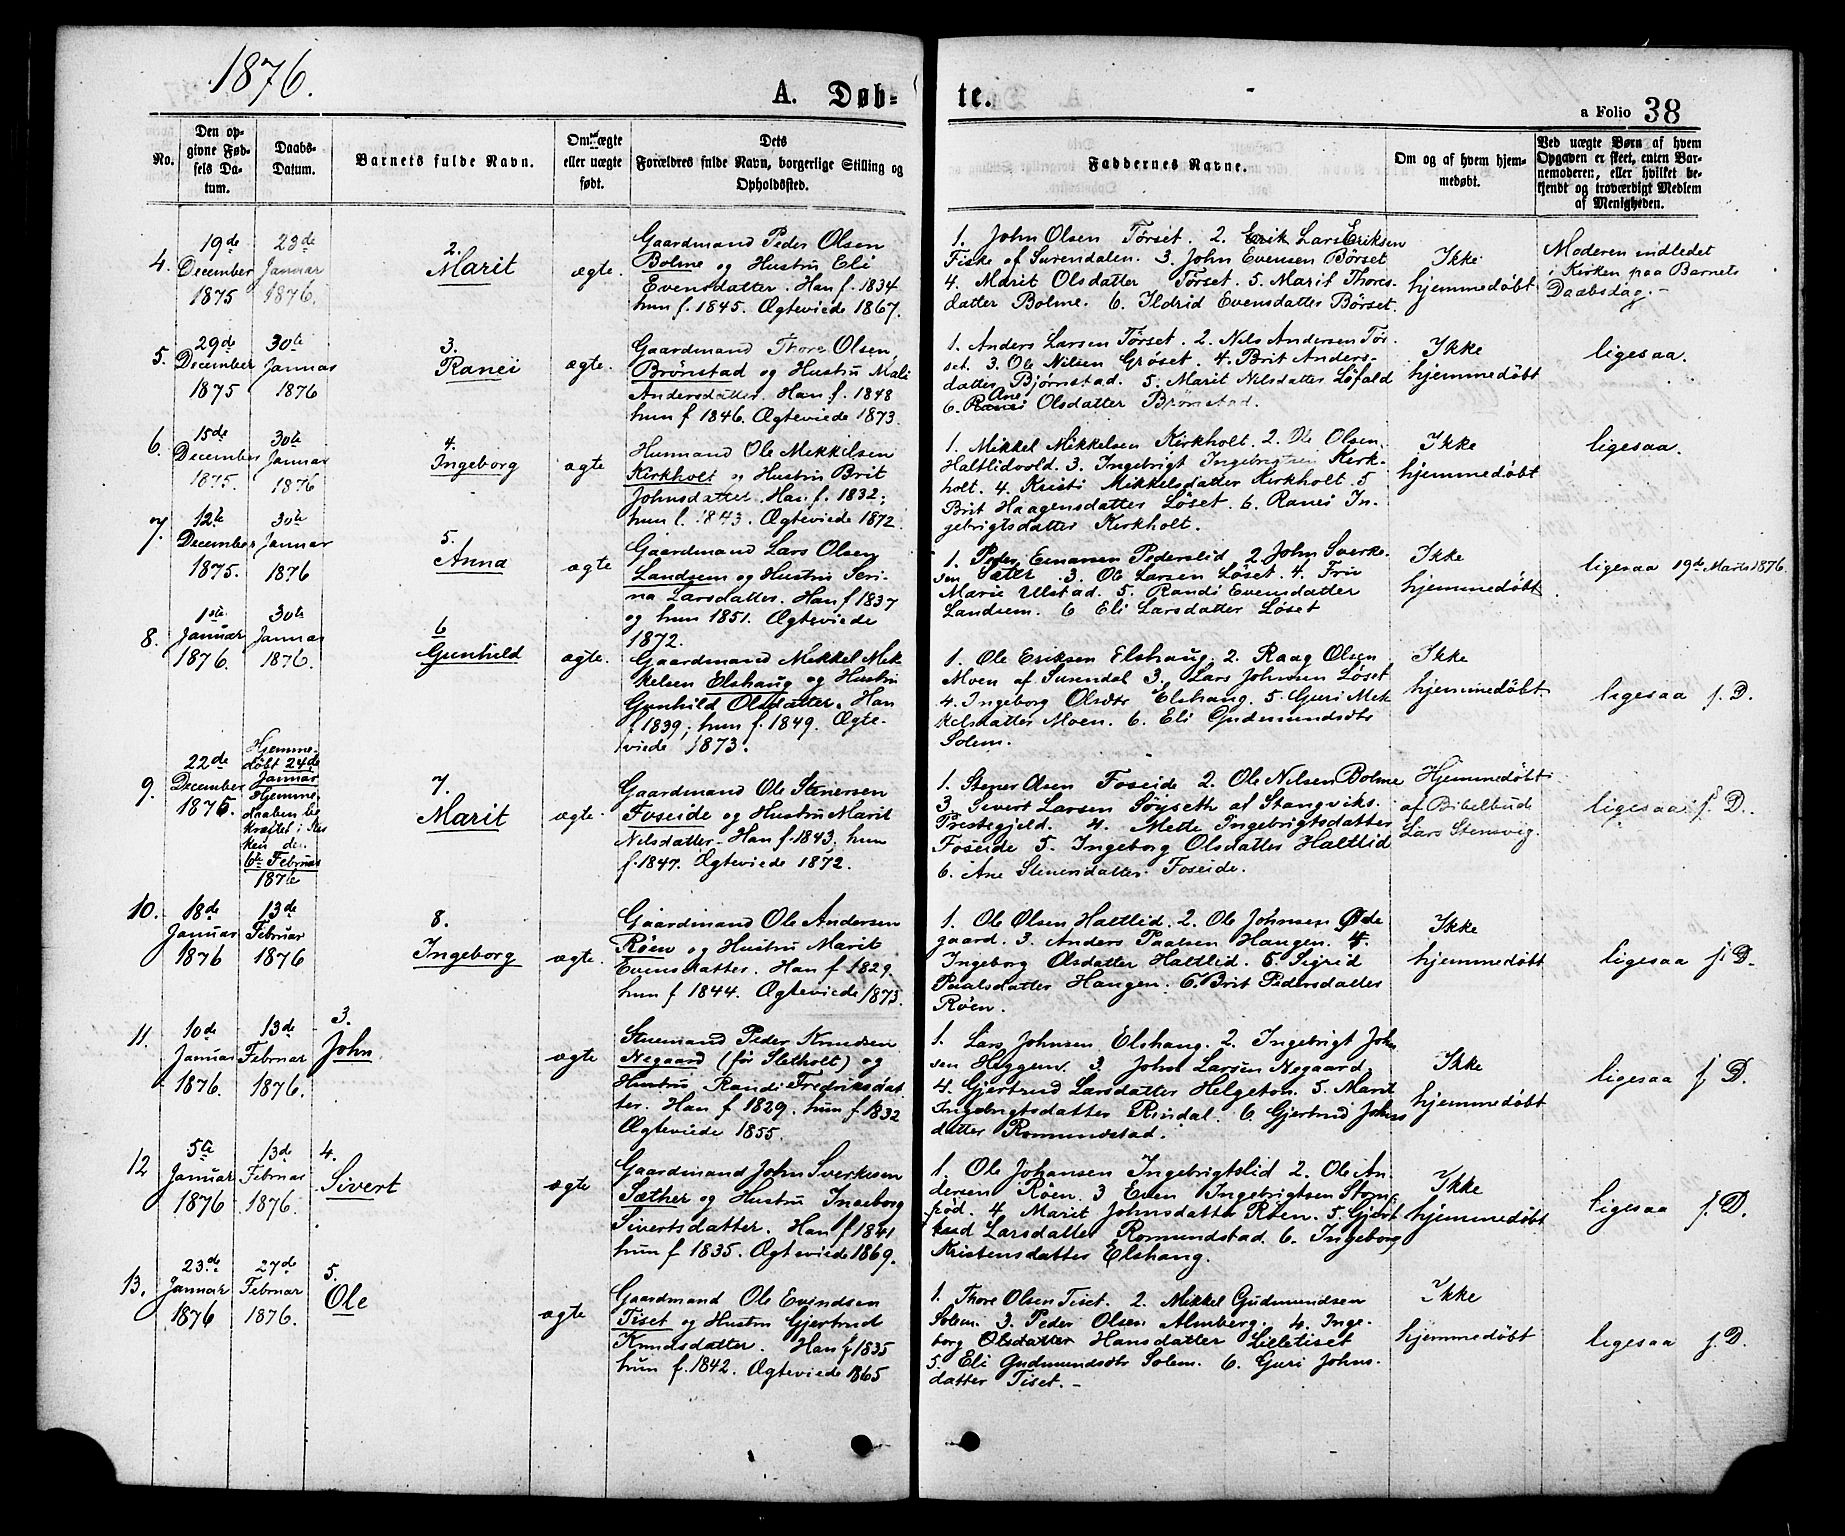 1876.
A. Døb-
te.
a Folio 38
No.
Den op-
givne Fød-
sels Da-
tum.
Daabs-
Datum.
Barnets fulde Navn.
Om ægte
eller uægte
født.
Dets
Forældres fulde Navn, borgerlige Stilling og
Opholdssted.
Faddernes Navne.
Om og af hvem hjem-
medøbt.
Ved uægte Børn af hvem
Opgaven er skeet, enten Bar-
nemoderen, eller hvilket be-
kjendt og troværdigt Medlem
af Menigheden.
4.
19de
December
1875
23de
Januar
1876.
2.
Marit
ægte.
Gaardmand Peder Olsen
Bolme og Hustru Eli
Evensdatter. Han f. 1834
hun f. 1845. Ægteviede 1867.
1. John Olsen Tørset. 2. Erik Lars Eriksen
Fiske af Surendalen. 3. John Evensen Børset
4. Marit Olsdatter Tørset. 5. Marit Thores-
datter Bolme. 6. Ildrid Evensdatter Børset.
Ikke
hjemmedøbt
Moderen indledet
i Kirken paa Barnets
Daabsdag.-
5.
29de
December
1875
30te
Januar
1876
3.
Ranei
ægte.
Gaardmand Thore Olsen
Brønstad og Hustru Mali
Andersdatter. Han f. 1848
hun f 1846. Ægteviede 1873.
1. Anders Larsen Tørset. 2. Nils Andersen Tør-
set. 3. Ole Nilsen Grøset. 4. Brit Anders-
datter Bjørnstad. 5. Marit Nilsdatter Løfald
Ane
6. Ranei Olsdatter Brønstad.
Ikke
hjemmedøbt
ligesaa.
6.
15de
December
1875.
30te
Januar
1876
4.
Ingeborg
ægte
Husmand Ole Mekkelsen
Kirkholt og Hustru Brit
Johnsdatter. Han f. 1832.
hun f. 1843. Ægteviede 1872.
1. Mikkel Mikkelsen Kirkholt. 2. Ole Olsen
Haltlidvold. 3. Ingebrigt Ingebrigtsen Kirk-
holt. 4. Kristi Mikkelsdatter Kirkholt. 5
Brit Haagensdatter Løset. 6. Ranei In-
gebrigtsdatter Kirkholt.
Ikke
hjemmedøbt
ligesaa.
7.
12te
December
1875.
30te
Januar
1876
5.
Anna
ægte
Gaardmand Lars Olsen
Landsem og Hustru Seri-
na Larsdatter. Han f 1837
og hun 1851. Ægteviede
1872.
1. Peder Einarsen Pederslid 2. John Sverke-
sen Sæter. 3. Ole Larsen Løset. 4. Fru
Marie Ulstad. 5. Randi Evensdatter
Landsem. 6 Eli Larsdatter Løset
Ikke
hjemmedøbt.
ligesaa 19de Marts 1876.
8.
1ste
Januar
1876.
30te
Januar
1876.
6
Gunhild
ægte.
Gaardmand Mekkel Mek-
kelsen Elshaug og Hustru
Gunhild Olsdatter. Han
f. 1839; hun f. 1849. Ægte-
viede 1873.
1. Ole Eriksen Elshaug. 2. Raag Olsen
Moen af Surendal 3. Lars Johnsen Løset
4. Ingeborg Olsdtr Elshaug. 5. Guri Mek-
kelsdatter Moen. 6. Eli Gudmundsdtr
Solem.
Ikke
hjemmedøbt
ligesaa f. D.
9.
22de
December
1875.
Hjemme-
døbt 24de
Januar
Hjemme-
daaben be-
kræftet i Kir
ken den
6te Februar
1876
7.
Marit
ægte.
Gaardmand Ole Stenersen
Foseide og Hustru Marit
Nilsdatter. Han f. 1843. hun
f. 1847. Ægteviede 1872.
1. Stener Olsen Foseide 2. Ole Nilsen Bolme
3. Sivert Larsen Søyseth af Stangviks
Prestegjeld. 4. Mette Ingebrigtsdatter
Foseide 5. Ingeborg Olsdatter Haltlid
6. Ane Stenersdatter Foseide.
Hjemmedøbt
af Bibelbud
Lars Stensvig.
ligesaa f. D.
10.
18de
Januar
1876
13de
Februar
1876
8.
Ingeborg
ægte.
Gaardmand Ole Andersen
Røen og Hustru Marit
Evensdatter. Han f 1829.
hun f 1844. Ægteviede 1873.
1. Ole Olsen Haltlid. 2. Ole Johnsen Øde
gaard. 3. Anders Paalsen Haugen. 4.
Ingeborg Olsdatter Haltlid. 5. Sigrid
Paalsdatter Haugen. 6. Brit Pedersdatter
Røen.
Ikke
hjemmedøbt
ligesaa f. D.
11.
10de
Januar
1876.
13de
Februar
1876.
3.
John
ægte
Stuemand Peder Knudsen
Negaard (før Sletholt) og
Hustru Randi Fredriksdat
ter. Han f 1829. hun f. 1832
Ægteviede 1855.
1. Lars Johnsen Elshaug. 2. Ingebrigt John
sen Heggem. 3. John Larsen Negaard
4. Gjertrud Larsdatter Helgeton. 5. Marit
Ingebrigtsdatter Rindal. 6. Gjertrud Johns
datter Romundstad.
Ikke
hjemmedøbt
ligesaa f D.
12
5te
Januar
1876
13de
Februar
1876.
4.
Sivert
ægte
Gaardmand John Sverkesen
Sæther og Hustru Ingeborg
Sivertsdatter. Han f 1841
hun f 1835. Ægteviede 1869.
1. Ole Johansen Ingebrigtslid 2. Ole An
dersen Røen. 3 Even Ingebrigtsen Stom
prød. 4 Marit Johnsdatter Røen. 5. Gjert
rud Larsdatter Romundstad. 6. Ingeborg
Kristensdatter Elshaug.
Ikke
hjemmedøbt
ligesaa f. D.
13.
23de
Januar
1876
27de
Februar
1876.
5.
Ole
ægte
Gaardmand Ole Evindsen
Tiset og Hustru Gjertrud
Knudsdatter. Han f 1835
hun f. 1842. Ægteviede 1865
1. Thore Olsen Tiset. 2. Mikkel Gudmundsen
Solem. 3. Peder Olsen Almberg. 4. Inge-
borg Olsdatter Hansdatter Lilletiset
5. Eli Gudmundsdtr Solem. 6. Guri Johns-
datter Tiset.-
Ikke
hjemmedøbt
ligesaa f. D.